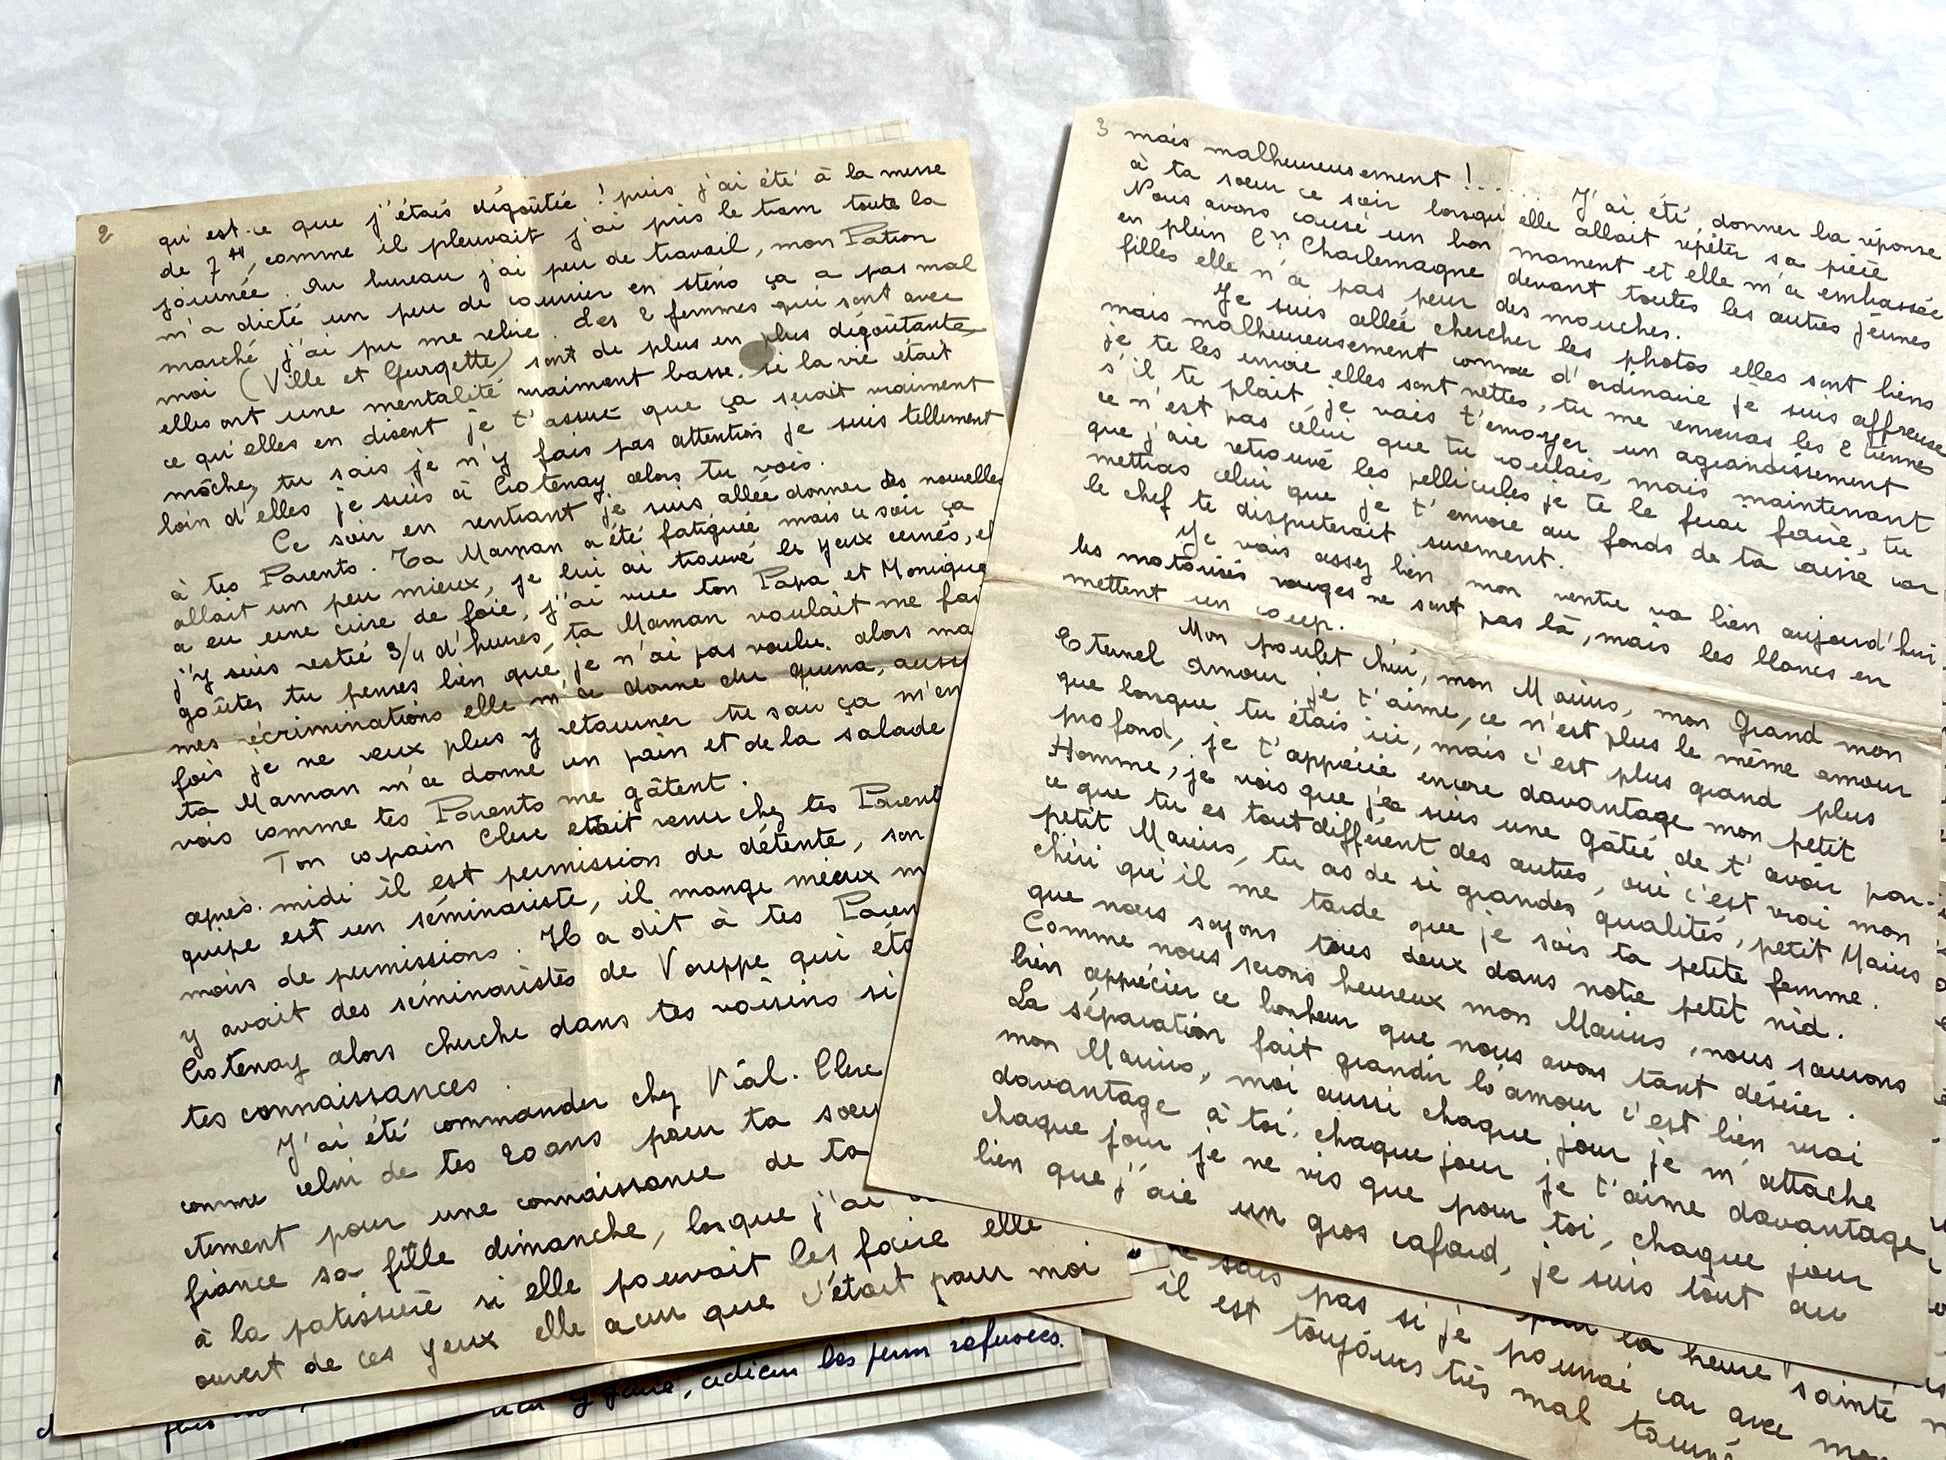 2
qu'est-ce que j'étais dégoûtée ! puis j'ai été à la messe
de 7H, comme il pleuvait j'ai pris le tram toute la
journée. Au bureau j'ai peu de travail, mon Patron
m'a dicté un peu de courrier en sténo ça a pas mal
marché j'ai pu me relire. Les 2 femmes qui sont avec
moi (Ville et Gurgette) sont de plus en plus dégoûtantes
elles ont une mentalité vraiment basse. si la vie était
ce qu'elles en disent je t'assure que ça serait vraiment
moche, tu sais je n'y fais pas attention je suis tellement
loin d'elles je suis à Crotenay alors tu vois.
Ce soir en rentrant je suis allée donner des nouvelles
à tes Parents. Ta Maman a été fatiguée mais ce soir ça
allait un peu mieux, je lui ai trouvé les yeux cernés, el
a eu une crise de foie, j'ai vue ton Papa et Monique
j'y suis restée 3/4 d'heures, ta Maman voulait me fai
goûter tu penses bien que je n'ai pas voulu. alors ma
mes écriminations elle m'a donné du quina, aussi
fois je ne veux plus y retourner tu sau ça m'en
ta Maman m'a donné un pain et de la salade
vois comme tes Parents me gâtent.
Ton copain Clerc était venu chez tes Parent
après-midi il est permission de détente, son
quipe est un séminariste, il mange mieux m
mois de permissions. Il a dit à tes Paren
y avait des séminaristes de Voreppe qui éta
Crotenay alors cherche dans tes voisins si
tes connaissances.
J'ai été commander chez Vial. Clerc
comme celui de tes 20 ans pour ta soeu
ctement pour une connaissance de ta
fiance sa fille dimanche, lorsque j'ai
à la patissière si elle pouvait les faire elle
ouvert de ces yeux elle a cru que c'était pour moi
3
mais malheureusement !....
J'ai été donner la réponse
à ta soeur ce soir lorsqu'elle allait répéter sa pièce
Nous avons causé un bon moment et elle m'a embrassée
en plein Crs Charlemagne devant toutes les autres jeunes
filles elle n'a pas peur des mouches.
Je suis allée chercher les photos elles sont biens
mais malheureusement comme d'ordinaire je suis affreuse
je te les envoie elles sont nettes, tu me renverras les 2 tiennes
s'il te plait, je vais t'envoyer un agrandissement
ce n'est pas celui que tu voulais, mais maintenant
que j'aie retrouvé les pellicules je te le ferai faire, tu
mettras celui que je t'envoie au fonds de ta caisse car
le chef te disputerait surement.
Je vais assez bien mon ventre va bien aujourd'hui
les motorisés rouges ne sont pas là, mais les blancs en
mettent un coup.
Mon poulet chéri, mon Marius, mon Grand mon
Eternel Amour je t'aime, ce n'est plus le même amour
que lorsque tu étais ici, mais c'est plus grand plus
profond, je t'apprécie encore davantage mon petit
Homme, je vois que je suis une gâtée de t'avoir par-
ce que tu es tout différent des autres, oui c'est vrai mon
petit Marius, tu as de si grandes qualités, petit Marius
chéri qu'il me tarde que je sois ta petite femme.
que nous soyons tous deux dans notre petit nid.
Comme nous serons heureux mon Marius, nous saurons
bien apprécier ce bonheur que nous avons tant désirer.
La séparation fait grandir l'amour c'est bien vrai
mon Marius, moi aussi chaque jour je m'attache
davantage à toi, chaque jour je t'aime davantage
chaque jour je ne vis que pour toi, chaque jour
bien que j'aie un gros cafard, je suis tout au
sais pas si je pourrai car avec
il est toujours très mal tourné
la heure sainte
y gané, adieu les perm refusées.